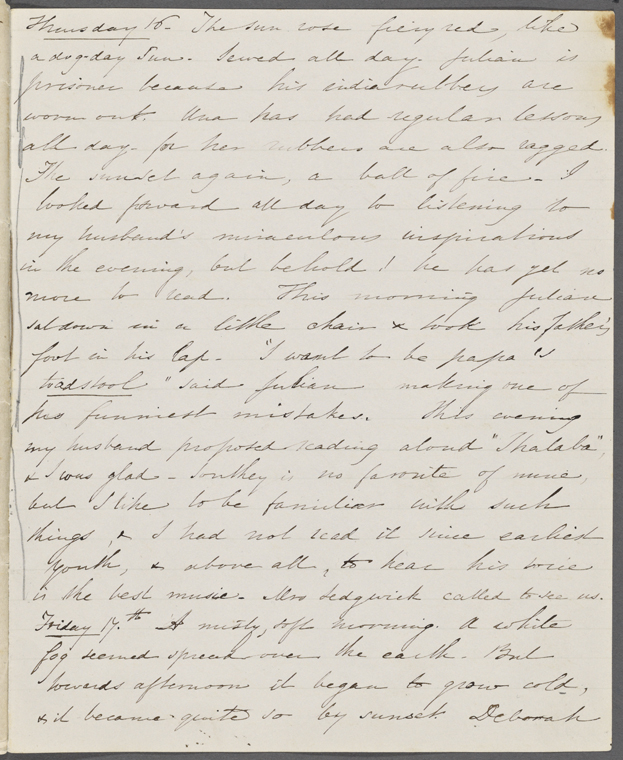 Thursday 16 - The sun rose fiery red, like
a dog-day Sun. Sewed all day. Julian is
prisoner because his india rubbers are
worn out. Una has had regular lessons
all day - for her rubbers are also ragged.
The sunset again, a ball of fire - I
looked forward all day to listening to
my husband's miraculous inspirations
in the evening, but behold! he has yet no
more to read. This morning Julian
sat down in a little chair & took his father's
foot in his lap. "I want to be papa's
toadstool" said Julian making one of
his funniest mistakes. This evening
my husband proposed reading aloud "Thalaba",
& I was glad - Southey is no favorite of mine,
but I like to be familiar with such
things, & I had not read it since earliest
youth, & above all, to hear his voice
is the best music. Mrs Sedgwick called to see us.
Friday 17.th A misty, soft morning. A white
fog seemed spread over the earth. But
towards afternoon it began to grow cold,
& it became quite so by sunset. Deborah